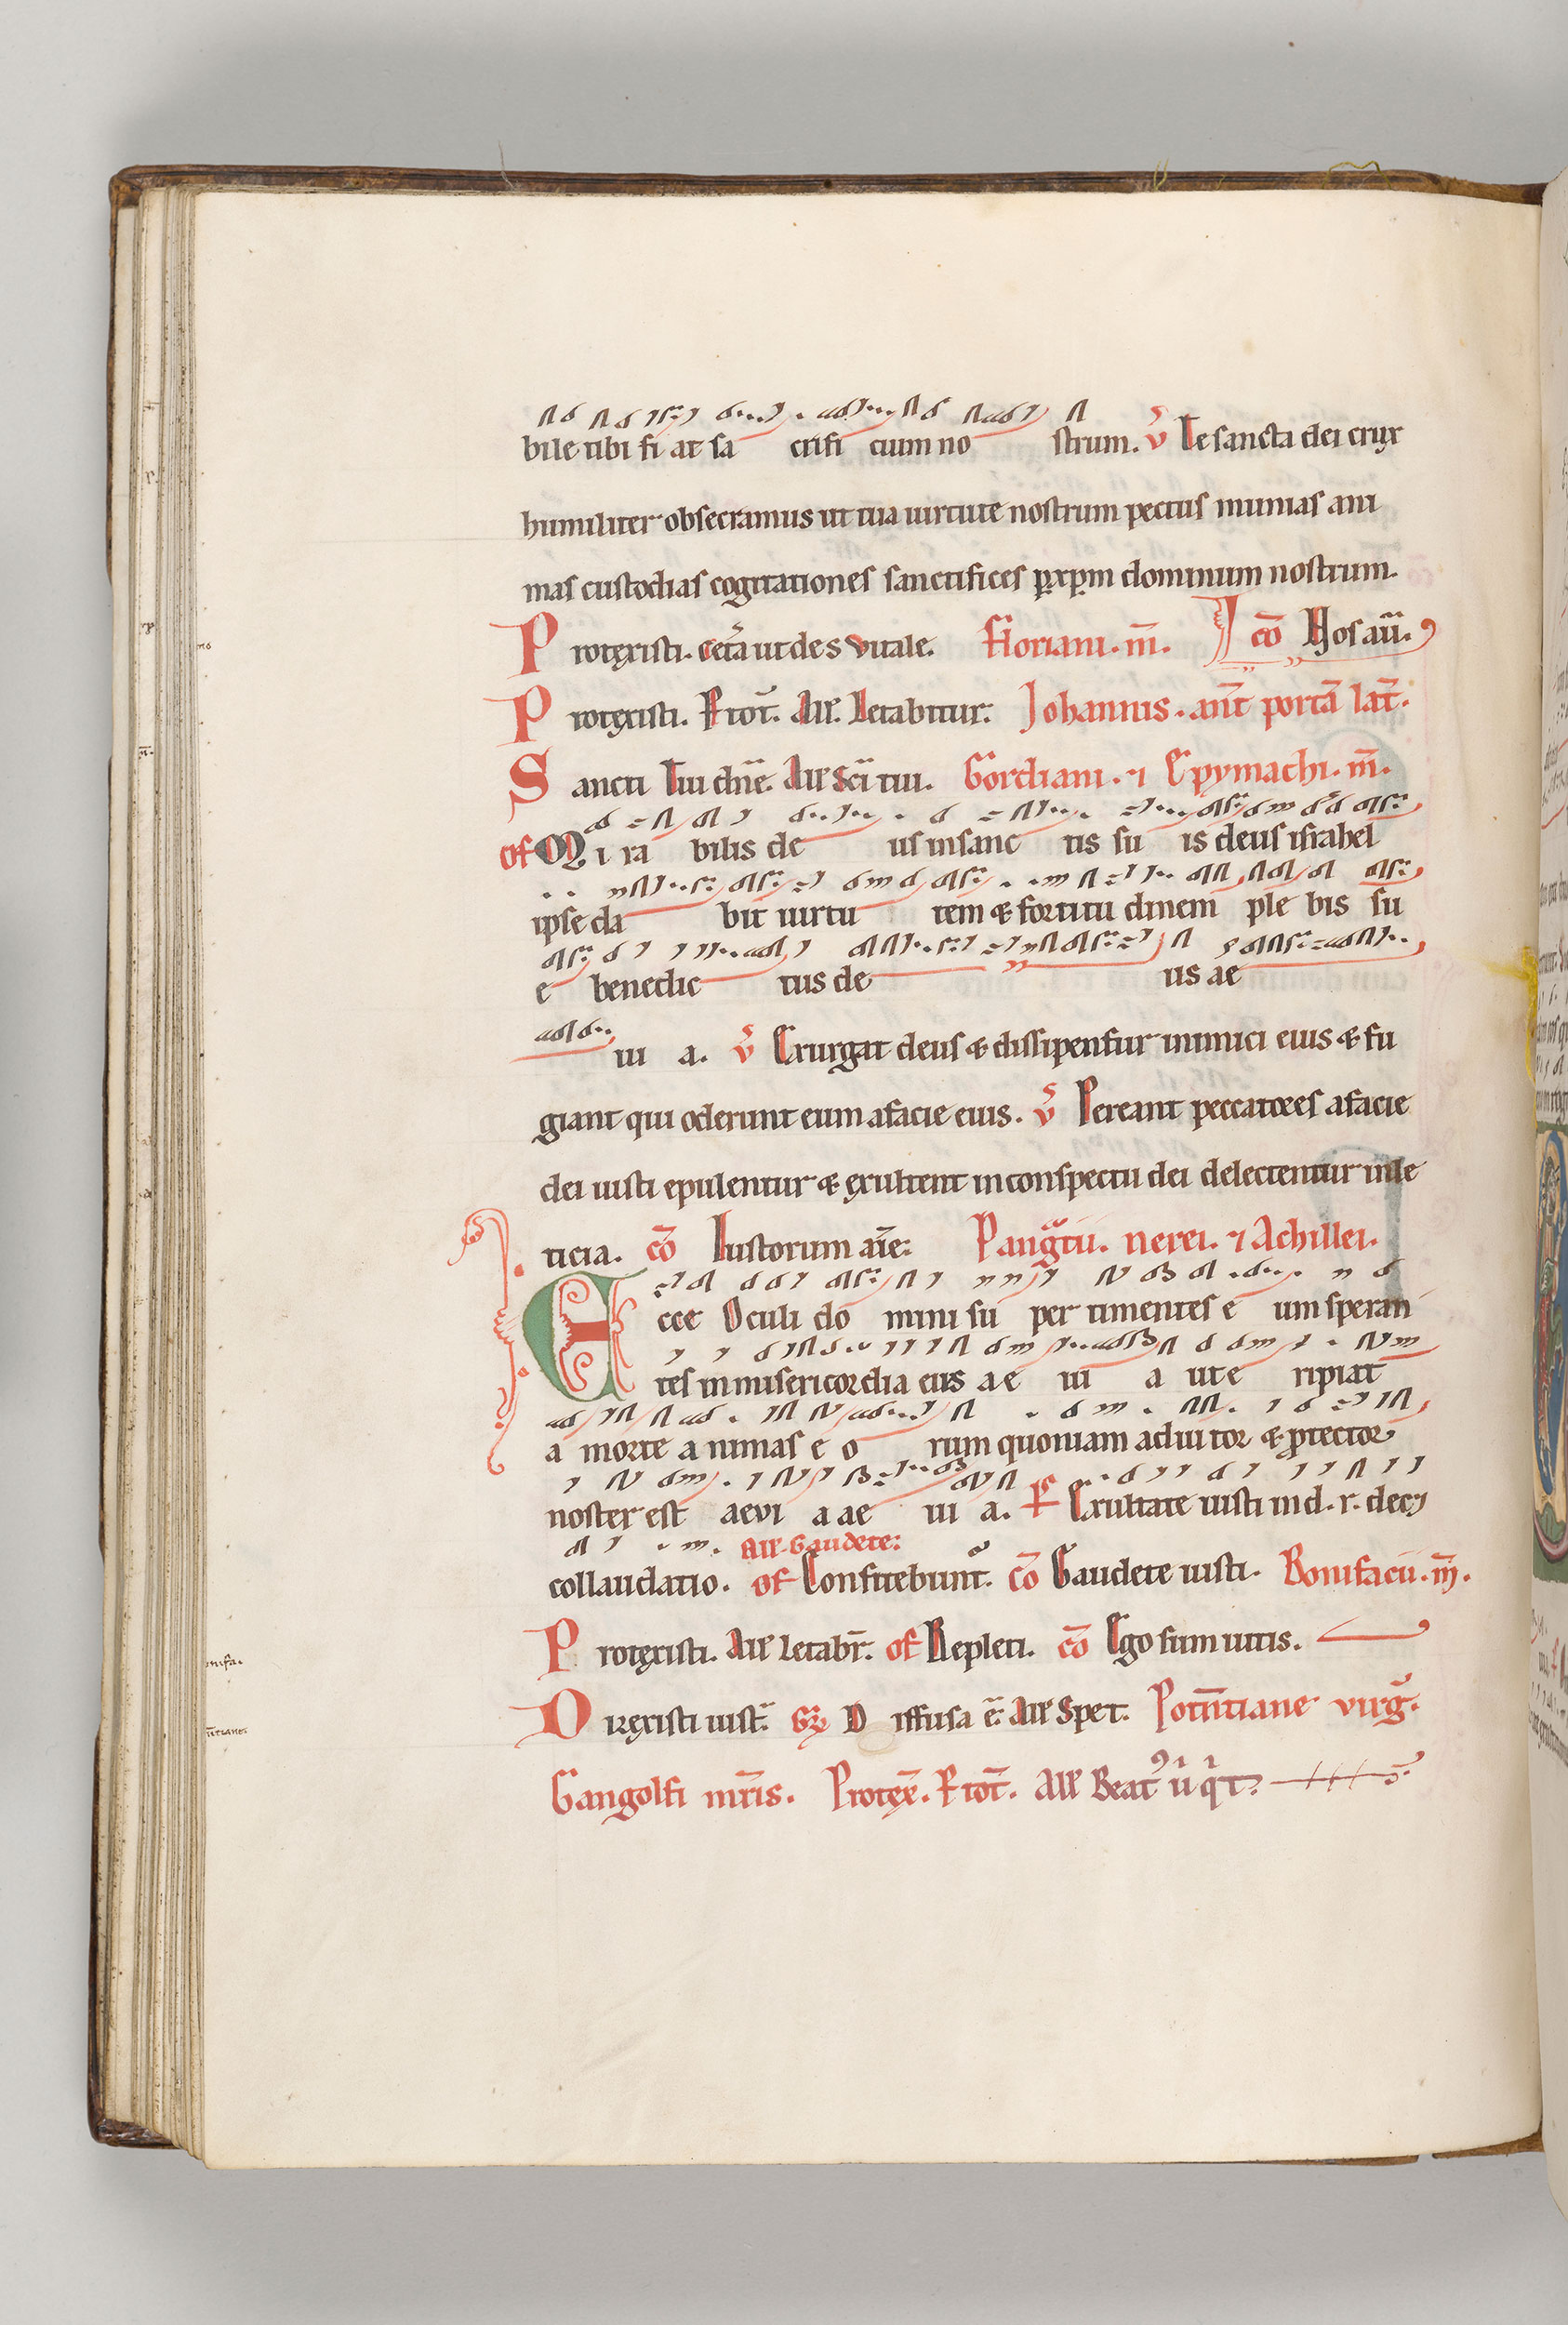 bile tibi fi at sa crifi cium no strum. v̄ Te sancta dei crux
humiliter obsecramus ut tua uirtute nostrum pectus munias ani
mas custodias cogitationes sanctifices p xpm dominum nostrum.
Protęxisti. cetā ut de s vitale. Floriani. m̄. cō Nos aū.
Protęxisti. R tot̄. All̄. Letabitur. Johannis. ant̄ portā lat̄.
Sancti tui dn̄e. All̄ Sc̄i tui. Gordiani. ⁊ Epymachi. m̄.
of Mi ra bilis de us in sanc tis su is deus israhel
ipse da bit uirtu tem & fortitu dinem ple bis su
e benedic tus de us ae
ui a. v̄ Exurgat deus & dissipentur inimici eius & fu
giant qui oderunt eum a facie eius. v̄ Pereant peccatores a facie
dei iusti epulentur & ęxultent in conspectu dei delectentur in le
ticia. cō Iustorum aīe: Pangtii. nerei. ⁊ Achillei.
Ecce Oculi do mini su per timentes e um speran
tes in misericordia eius ae ui a ut e ripiat
a morte a nimas e o rum quoniam adiu tor & ꝓtector
noster est aevi a ae ui a. Ps Exultate iusti in d. r. dec;
All̄. Gaudete:
collaudatio. of Confitebunt̄. cō Gaudete iusti. Bonifacii. m̄.
Protęxisti. All̄ Letabr̄. of Repleti. cō Ego sum uitis.
Diręxisti iust̄. Gr̄ Diffusa ē. All̄ Spet. Potn̄tiane virḡ.
Gangolfi mr̄is. Protęx̄. R tot̄. All̄ Beat⁹ ů qͥ t.